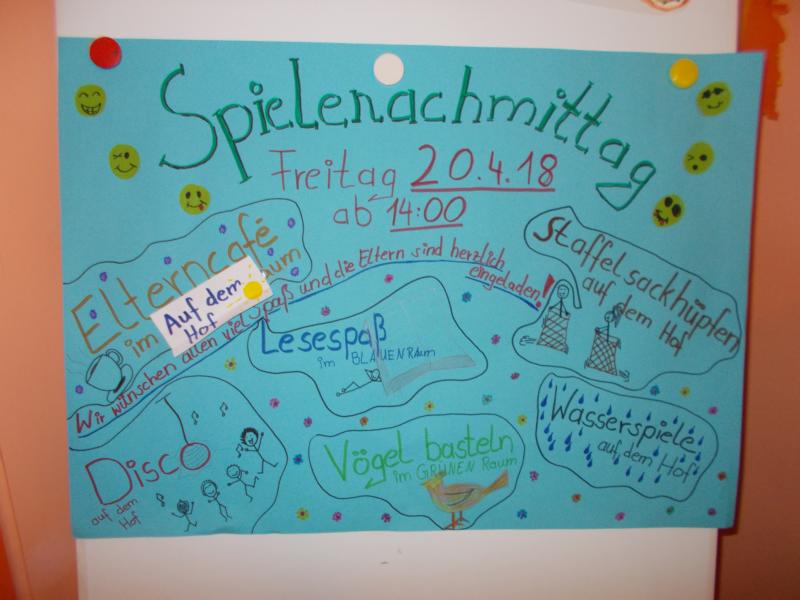 Spielenachmittag
Freitag 20.4.18
ab 14:00
Elterncafé
im
Auf dem
Hof
Wir wünschen allen viel Spaß und die Eltern sind herzlich
eingeladen!
Staffelsackhüpfen
auf dem Hof
Lesespaß
im BLAUEN Raum
Disco
auf dem
Hof
Vögel basteln
im GRÜNEN Raum
Wasserspiele
auf dem Hof